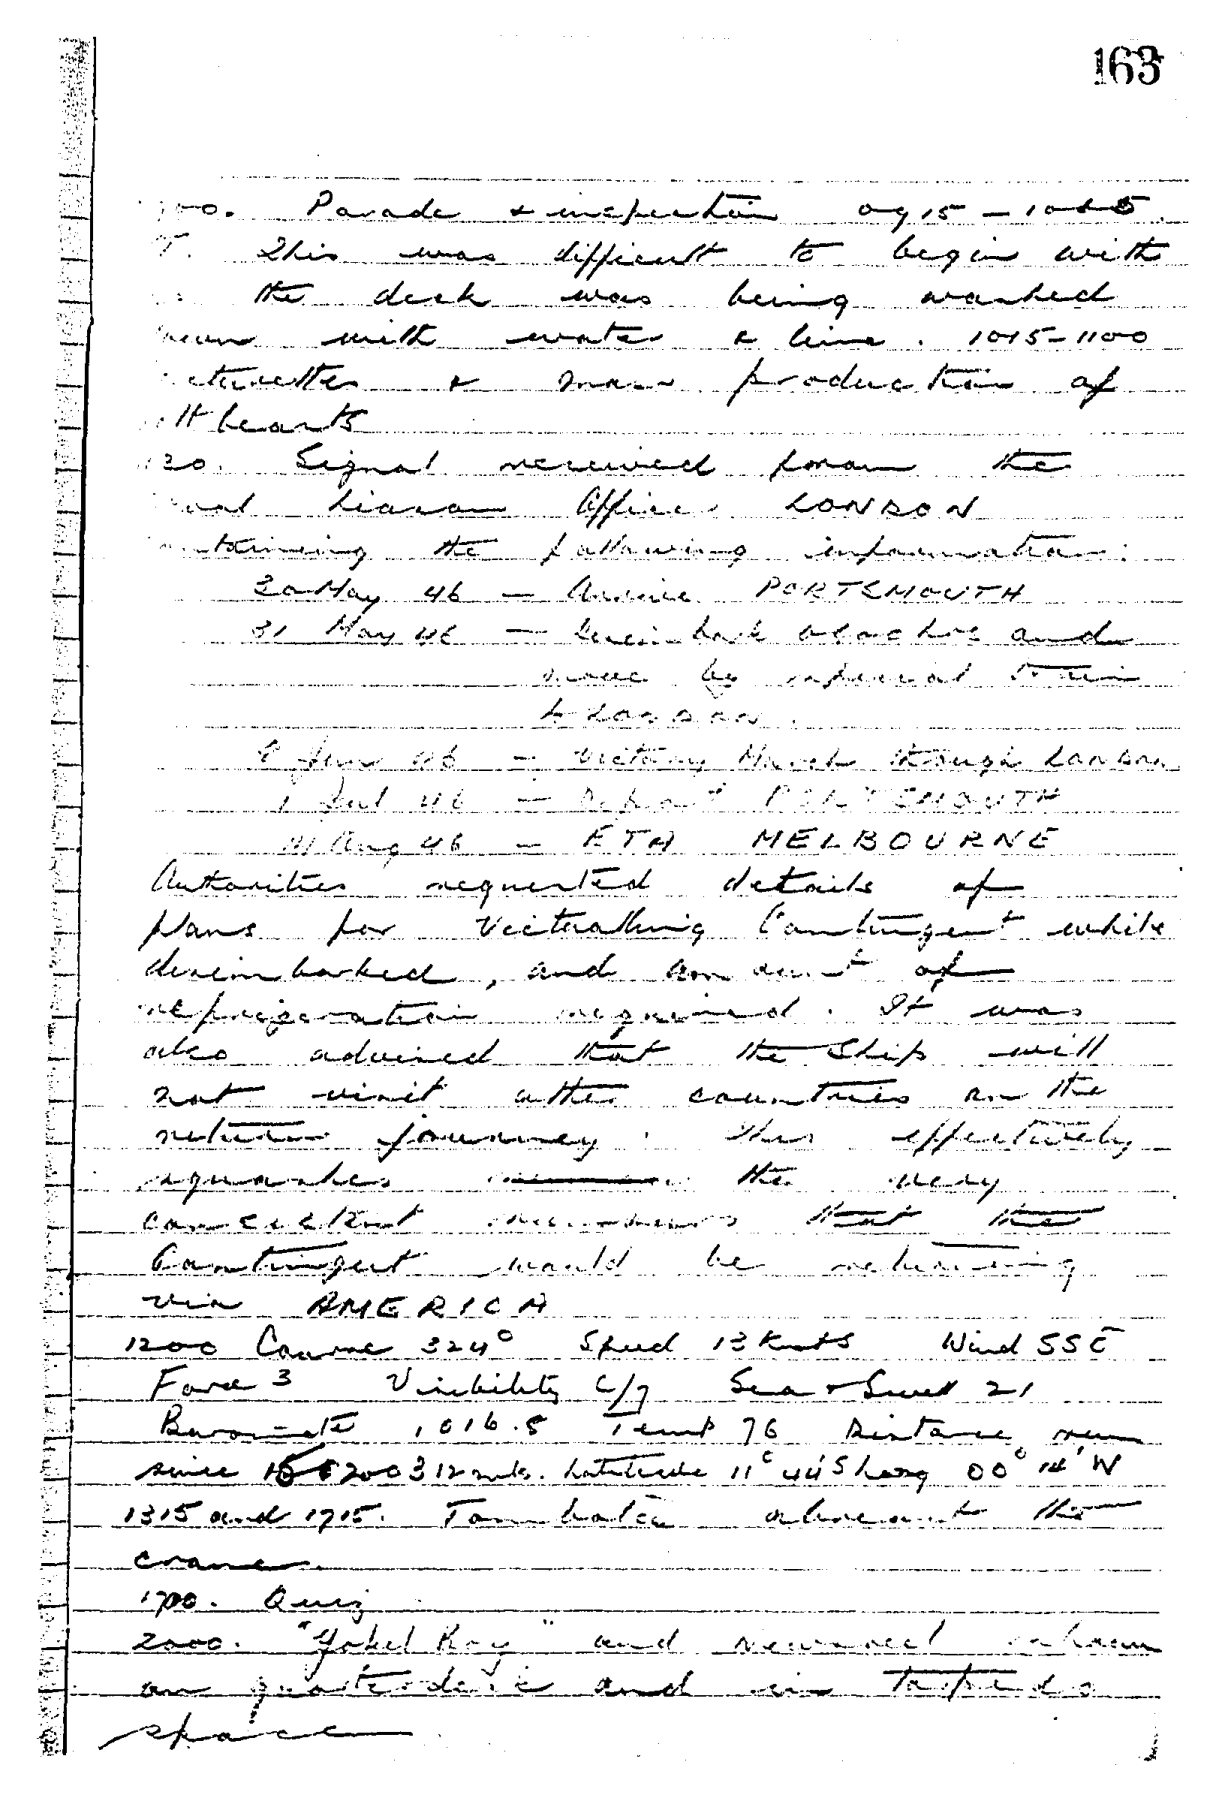 163
00. Parade & inspection 0915 - 1045
T. This was difficult to begin with
the deck was being washed
down with water & line. 1015-1100
& mass production of
felt hearts
Signal received from the
Liason Office LONDON
containing the following information:
30 May 46 - Arrive PORTSMOUTH
31 May 46 - Disembark and
move by special train
to LONDON.
8 Jun 46 - Victory March through London
1 Jul 46 - Depart PORTSMOUTH
Aug 46 - ETA MELBOURNE
Authorities requested details of
plans for victualling Contingent while
disembarked, and amount of
refrigeration required. It was
also advised that the ship will
not visit other countries on the
return journey. This effectively
squashes the very
consistent rumours that the
Contingent would be returning
via AMERICA
1200 Course 324° Speed 13 Knots Wind SSE
Force 3 Visibility C/7 Sea & Swell 21
Barometer 1016.5 Temp 76 Distance run
since 1200 312 mls. Latitude 11° 44' S Long 00° 14' W
1315 and 1715. Tombola abreast the
crane.
1700. Quiz
2000. "Yokel Boy" and newsreel shown
on quarterdeck and in torpedo
space